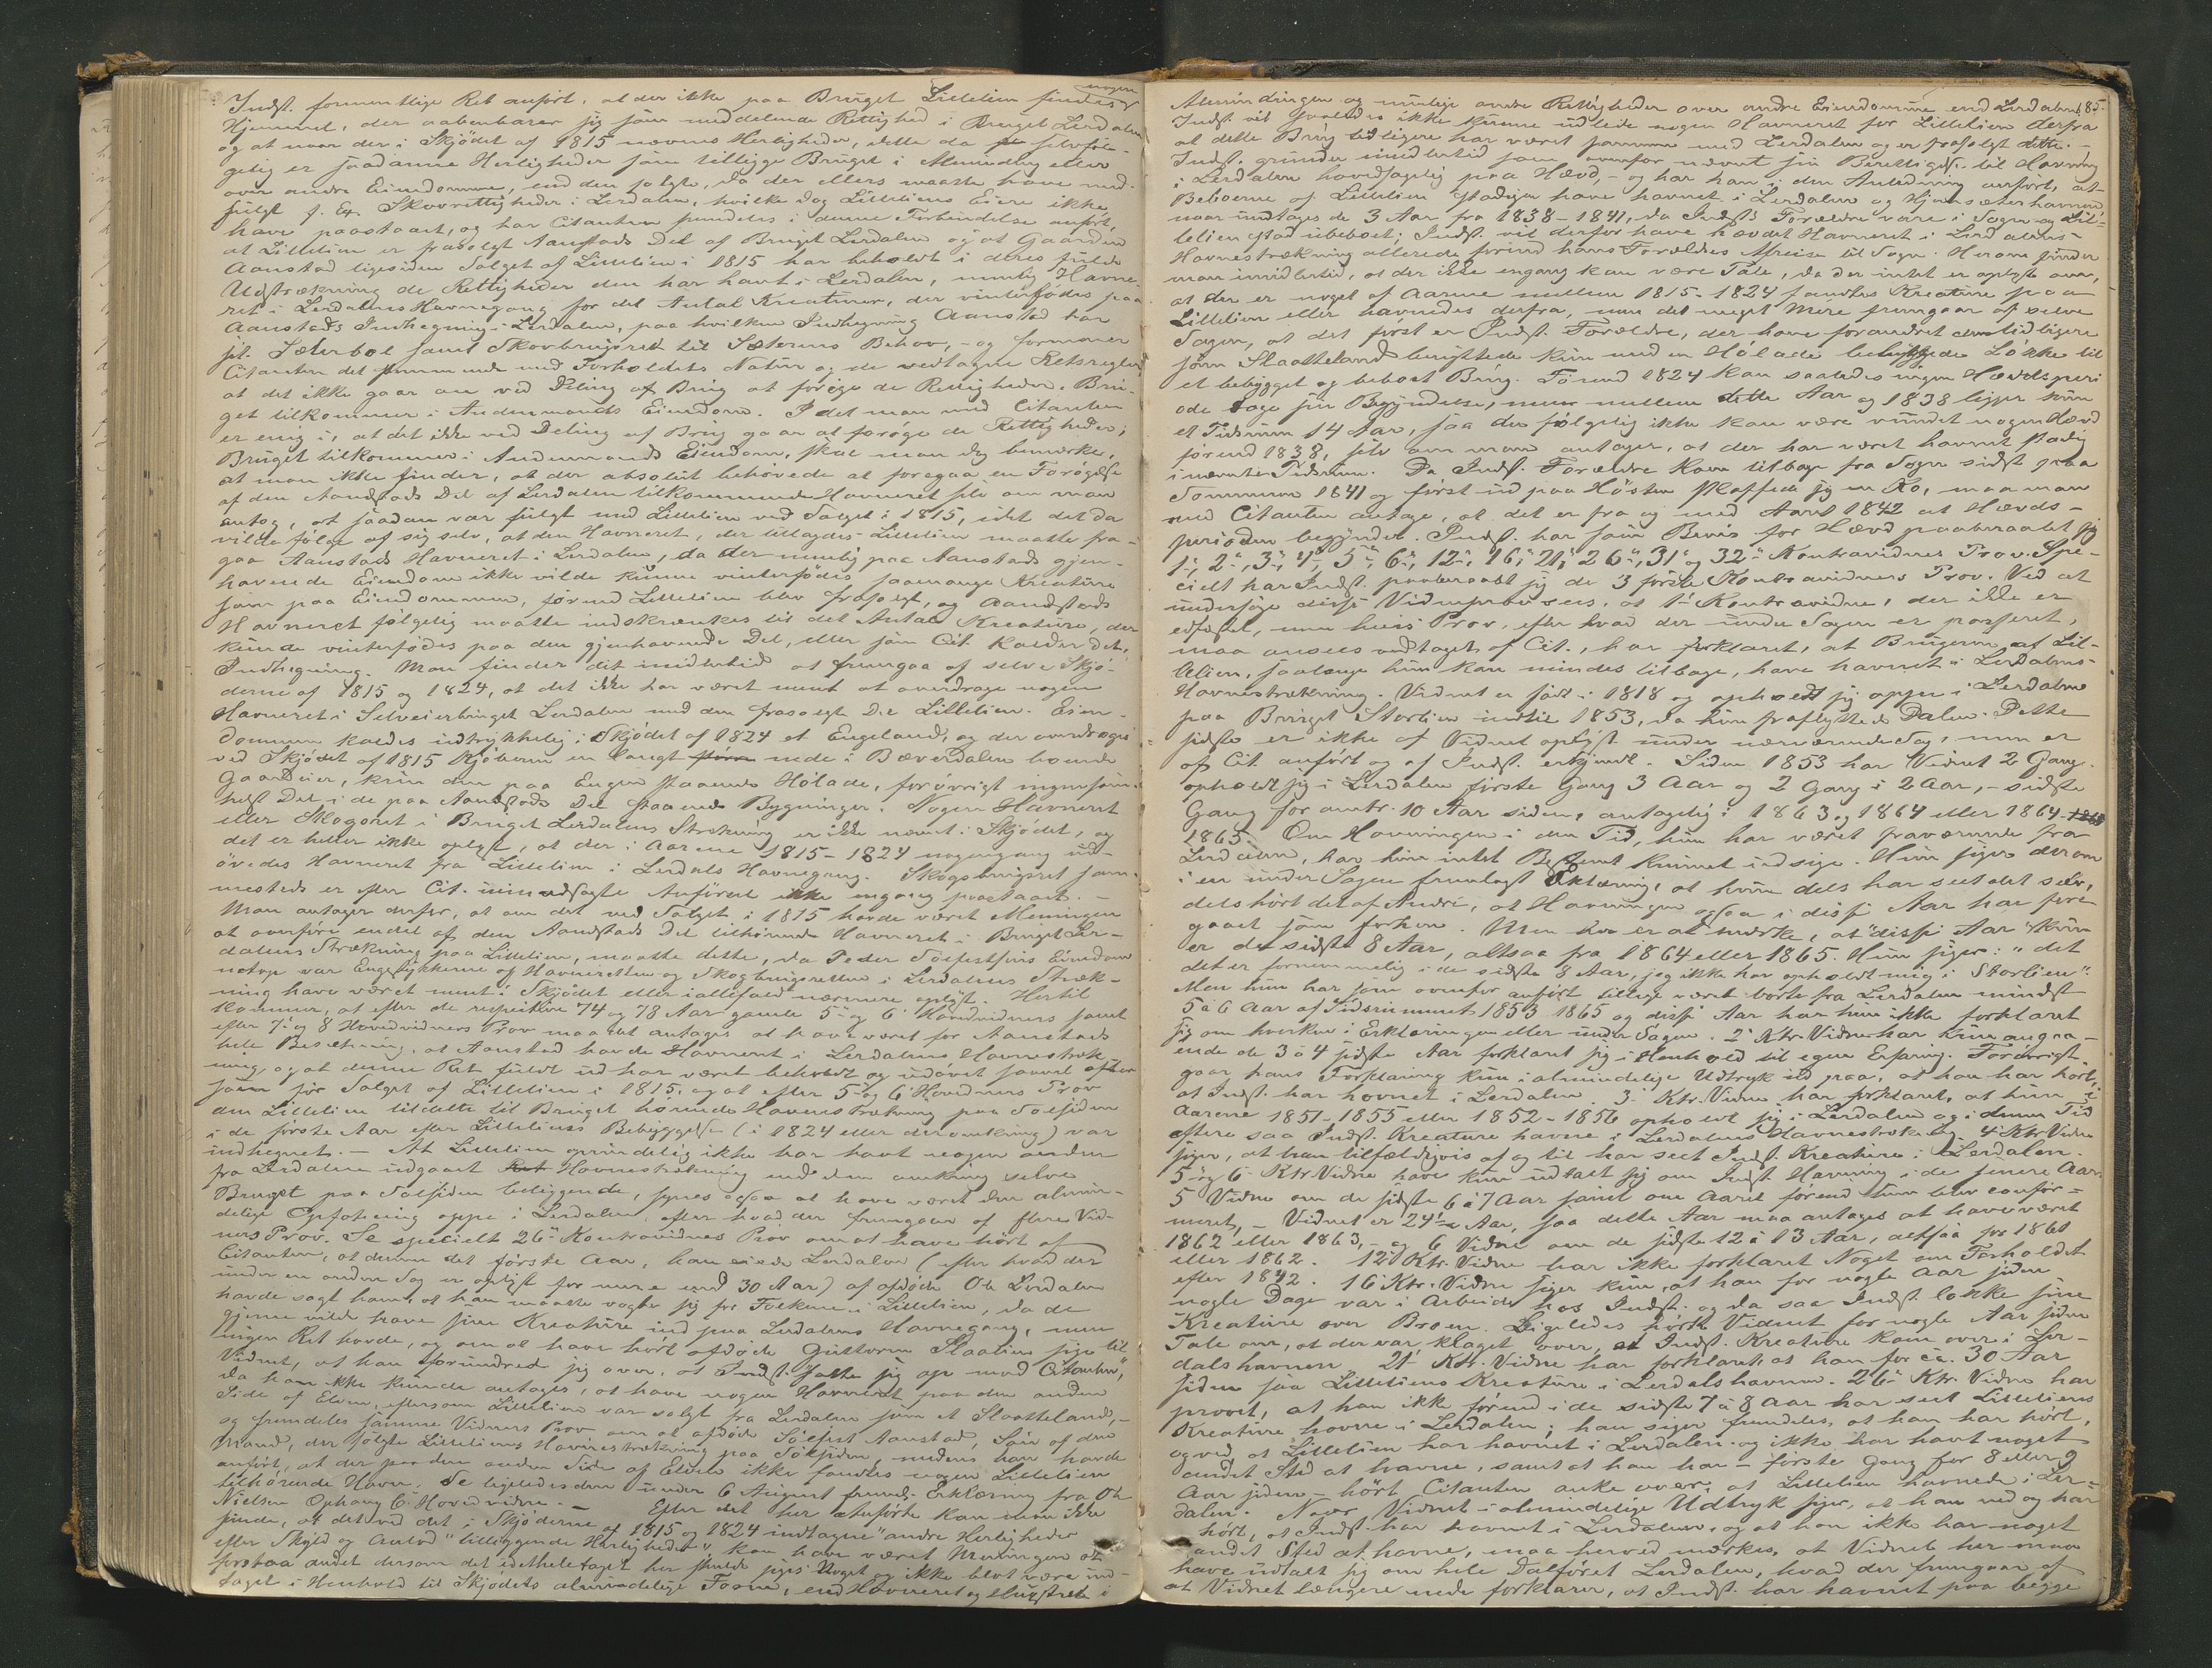 Indst. formentlige Ret anført, at der ikke paa Bruget Lillelien findes nogen
Hjemmel, der aabenbarer sig som meddelende Rettighed i Bruget Lerdalen
og at naar der i Skjødet af 1815 nævnes Herligheder, dette da selvføl-
gelig er saadanne Herligheder som tilligge Bruget i Almending eller
over andre Eiendomme, end den solgte, da der ellers maatte have med-
fulgt f. Ex. Skovrettigheder i Lerdalen, hvilke dog Lilleliens Eiere ikke
have paastaaet, og har Citanten fremdeles i denne Forbindelse anført,
at Lillelien er frasolgt Aanstads Del af Bruget Lerdalen og at Gaarden
Aanstad ligesiden Salget af Lillelien i 1815 har beholdt i deres fulde
Udstrækning de Rettigheder den har havt i Lerdalen, nemlig Havne-
ret i Lerdalens Havnegang for det Antal Kreaturer, der vinterfødes paa
Aanstads Indhegning i Lerdalen, paa hvilken Indhegning Aanstad har
sit Sæterbol samt Skovbrugsret til Sæterens Behov, - og formener
Citanten det stemmende med Forholdets Natur og de vedtagne Retsregler
at det ikke gaar an ved Deling af Brug at forøge de Rettigheder, Bru-
get tilkommer i Andenmands Eiendom. I det man med Citanten
er enig i, at det ikke ved Deling af Brug gaar at forøge de Rettigheder,
Bruget tilkommer i Andenmands Eiendom, skal man dog bemærke,
at man ikke finder, at der absolut behøvede at foregaa en Forøgelse
af den Aandstads Del af Lerdalen tilkommende Havneret selv om man
antog, at saadan var fulgt med Lillelien ved Salget i 1815, idet det da
vilde følge af sig selv, at den Havneret, der tillagdes Lillelien maatte fra-
gaa Aanstads Havneret i Lerdalen, da der nemlig paa Aanstads gjen-
havende Eiendom ikke vilde kunne vinterfødes saamange Kreature
som paa Eiendommen, førend Lillelien blev frasolgt, og Aandstads
Havneret følgelig maatte indskrænkes til det Antal Kreature, der
kunde vinterfødes paa den gjenhavende Del, eller som Cit. kalder det,
Indhegning. Man finder dit imidlertid at fremgaa af selve Skjø-
derne af 1815 og 1824, at det ikke har været ment at overdrage nogen
Havneret i Selveierbruget Lerdalen med den frasolgte Del Lillelien. Eien-
dommen kaldes udtrykkelig i Skjødet af 1824 et Engeland, og der overdrages
ved Skjødet af 1815 Kjøberen en langt nede i Bæverdalen boende
Gaardeier, kun den paa Engen staaende Hølade, forøvrigt ingensom-
helst Del i de paa Aandstads Del staaende Bygninger. Nogen Havneret
eller Skogsret i Bruget Lerdalens Strækning er ikke nævnt i Skjødet, og
det er heller ikke oplyst, at der i Aarene 1815-1824 nogengang ud-
øvedes Havneret fra Lillelien i Lerdals Havnegang. Skogsbrugsret sam-
mesteds er efter Cit. uimodsagte Anførsel ikke engang paastaaet. -
Man antager derfor, at om det ved Salget i 1815 havde været Meningen
at overføre endel af den Aandstads Del tilhørende Havneret i Bruget Ler-
dalens Strækning paa Lillelien, maatte dette, da Peder Solfestsens Eiendom
netop var Engestykkerne og Havneretten og Skogbrugsretten i Lerdalens Stræk-
ning have været nævnt i Skjødet eller iallefald nærmere oplyst. Hertil
kommer, at efter de respektive 74 og 78 Aar gamle 5te og 6te Hovedvidners samt
efter 7de og 8 Hovedvidners Prov maa det antages at have været for Aanstads
hele Besætning, at Aanstad havde Havneret i Lerdalens Havnestræk-
ning, og at denne Ret fuldt ud har været beholdt og udøvet saavel efter
som før Salget af Lillelien i 1815, og at efter 5te og 6te Hovedvidners Prov
den Lillelien tildelte til Bruget hørende Havnestrækning paa Solsiden
i de første Aar efter Lilleliens Bebyggelse (i 1824 eller deromkring) var
indhegnet. - At Lillelien oprindelig ikke har havt nogen anden
fra Lerdalen udgaaet Havnestrækning end den omkring selve
Bruget paa Solsiden beliggende, synes ogsaa at have været den almin-
delige Opfatning oppe i Lerdalen, efter hvad der fremgaar af flere Vid-
ners Prov. Se specielt 26de Kontravidnes Prov om at have hørt af
Citanten, at denne det første Aar, han eiede Lerdalen (efter hvad der
under en anden Sag er oplyst for mere end 30 Aar) af afdøde Ole Lerdalen
havde sagt ham, at han maatte vogte sig for Folkene i Lillelien, da de
gjerne vilde have sine Kreature ind paa Lerdalens Havnegang, men
ingen Ret havde, og om at have hørt afdøde Guttorm Slaalien sige til
Vidnet, at han forundred sig over, at Indst. satte sig op mod Citanten,
da han ikke kunde antages, at have nogen Havneret paa den anden
Side af Elven, eftersom Lillelien var solgt fra Lerdalen som et Slaatteland, -
og fremdeles samme Vidnes Prov om at afdøde Solfest Aanstad, Søn af den
Mand, der solgte Lilleliens Havnestrækning paa Solsiden, medens han havde
anført, at der paa den anden Side af Elven ikke fandtes nogen Lillelien
tilhørende Havn. Se ligeledes den under 6 August freml. Erklæring fra Ole
Nielsen Ophaug 6te Hovedvidne. - Efter det her Anførte kan man ikke
finde, at det ved det i Skjøderne af 1815 og 1824 indtagne "andre Herligheder
efter Skyld og Antal" "tilliggende Herligheder", kan have været Meningen at
forstaa andet dersom det idetheletaget her skulde siges Noget og ikke blot være ind-
taget i Henhold til Skjødets almindelige Form, end Havneret og Brugsret i
Almindingen og mulige andre Rettigheder over andre Eiendomme end Lerdalens. 85.
Indst. vil saaledes ikke kunne udlede nogen Havneret for Lillelien derfra
at dette Brug tidligere har været sammen med Lerdalen og er frasolgt dette. -
Indst. grunder imidlertid som ovenfor nævnt sin Berettigelse til Havning
i Lerdalen hovedsagelig paa Hævd, - og har han i den Anledning anført, at
Beboerne af Lillelien stadigen have havnet i Lerdalen og Hjemsæterhavnen,
naar undtages de 3 Aar fra 1838-1841, da Indst's Forældre vare i Sogn og Lil-
lelien stod ubeboet; Indst. vil derfor have hævdet Havneret i Lerdalens
Havnestrækning allerede førend hans Forældres Afreise til Sogn. Herom finder
man imidlertid, at der ikke engang kan være Tale, da der intet er oplyst om,
at der er noget af Aarene mellem 1815-1824 fandtes Kreature paa
Lillelien eller havnedes derfra, men det meget Mere fremgaar af selve
Sagen, at det først er Indst. Forældre, der have forandret den tidligere
som Slaatteland benyttede kun med en Hølade bebyggede Løkke til
et bebygget og beboet Brug. Førend 1824 kan saaledes ingen Hævdsperi
ode tage sin Begyndelse, men mellem dette Aar og 1838 ligger kun
et Tidsrum 14 Aar, saa der følgelig ikke kan være vundet nogen Hævd
førend 1838, selv om man antager, at der har været havnet stadig
i nævnte Tidsrum. Da Indst. Forældre kom tilbage fra Sogn sidst paa
Sommeren 1841 og først ud paa Høsten skaffede sig en Ko, maa man
med Citanten antage, at det er fra og med Aaret 1842 at Hævds-
perioden begynder. Indst. har som Bevis for Hævd paaberaabt sig
1te, 2de, 3de, 4de, 5te, 6te, 12te, 16de, 21de, 26de, 31te og 32te Kontravidnes Prov. Spe-
cielt har Indst. paaberaabt sig de 3 første Kontravidners Prov. Ved at
undersøge disse Vidneprov sees, at 1te Kontravidne, der ikke er
edfæstet, men hvis Prov, efter hvad der under Sagen er passeret,
maa ansees vedtaget af Cit., har forklaret, at Brugerne af Lil-
lelien, saalænge hun kan mindes tilbage, have havnet i Lerdalens
Havnestrækning. Vidnet er født i 1818 og opholdt sig oppe i Lerdalen
paa Bruget Storlien indtil 1853, da hun fraflyttede Dalen. Dette
sidste er ikke af Vidnet oplyst under nærværende Sag, men er
af Cit. anført og af Indst. erkjendt. Siden 1853 har Vidnet 2 Gang.
opholdt sig i Lerdalen første Gang 3 Aar og 2 Gang i 2 Aar, - sidste
Gang for omtr. 10 Aar siden, antagelig i 1863 og 1864 eller 1864-
1865. Om Havningen i den Tid, hun har været fraværende fra
Lerdalen, har hun intet Bestemt kunnet udsige. Hun siger derom
i en under Sagen fremlagt Erklæring, at hun dels har seet det selv,
dels hørt det af Andre, at Havningen ogsaa i disse Aar har fore
gaaet som forhen. Men her er at mærke, at "disse Aar" kun
er de sidste 8 Aar, altsaa fra 1864 eller 1865. Hun siger: "det
det er fornemmelig i de sidste 8 Aar, jeg ikke har opholdt mig i Storlien".
Men hun har som ovenfor anført tillige været borte fra Lerdalen mindst
5 à 6 Aar af Tidsrummet 1853 1865 og disse Aar har hun ikke forklaret
sig om hverken i Erklæringen eller under Sagen. 2de Ktr. Vidne har kun angaa-
ende de 3 à 4 sidste Aar forklaret sig i Henhold til egen Erfaring. Forøvrigt
gaar hans Forklaring kun i almindelige Udtryk ud paa, at han har hørt,
at Indst. har havnet i Lerdalen. 3de Ktr. Vidne har forklaret, at hun i
Aarene 1851-1855 eller 1852-1856 opholdt sig i Lerdalen og i denne Tid
oftere saa Indst. Kreature havne i Lerdalens Havnestrækning. 4de Ktr Vidne
siger, at han tilfældigvis af og til har seet Indst. Kreature i Lerdalen.
5te og 6te Ktr Vidne have kun udtalt sig om Indst Havning i de senere Aar.
5 Vidne om de sidste 6 à 7 Aar samt om Aaret førend hun blev confir-
meret, - Vidnet er 24½ Aar, saa dette Aar maa antages at have været
1862 eller 1863, - og 6 Vidne om de sidste 12 à 13 Aar, altsaa fra 1861
eller 1862. 12te Ktr Vidne har ikke forklaret Noget om Forholdet
efter 1842. 16de Ktr. Vidne siger kun, at han for nogle Aar siden
nogle Dage var i Arbeide hos Indst. og da saa Indst lokke sine
Kreature over Broen. Ligeledes hørte Vidnet for nogle Aar siden
Tale om, at der var klaget over, at Indst. Kreature kom over i Ler-
dalshavnen. 21de Ktr. Vidne har forklaret, at han for ca. 30 Aar
siden saa Lilleliens Kreature i Lerdalshavnen. 26de Ktr. Vidne har
provet, at han ikke førend i de sidste 7 à 8 Aar har seet Lilleliens
Kreature havne i Lerdalen; han siger fremdeles, at han har hørt,
og ved, at Lillelien har havnet i Lerdalen og ikke har havt noget
andet Sted at havne, samt at han har - første Gang for 8 eller 9
Aar siden - hørt Citanten anke over, at Lillelien havnede i Ler-
dalen. Naar Vidnet i almindelige Udtryk siger, at han ved og har
hørt, at Indst. har havnet i Lerdalen, og at han ikke har noget
andet Sted at havne, maa herved mærkes, at Vidnet her maa
have udtalt sig om hele Dalføret Lerdalen, hvad der fremgaar af
at Vidnet længere nede forklarer, at Indst. har havnet paa begge